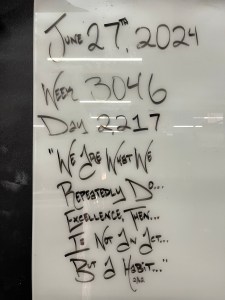 June 27th, 2024
Week 3046
Day 2,217
"We Are What We
Repeatedly Do...
Excellence, Then...
Is Not An Act...
But A Habit..."